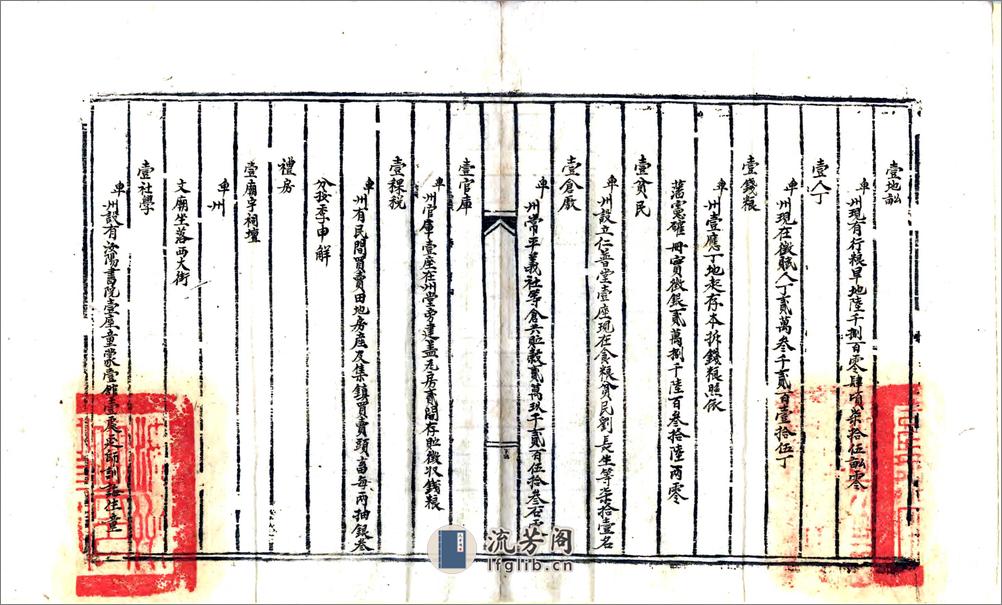 壹地畝
本州現有行糧旱地陸千捌百零肆頃柒拾伍畝零
壹人丁
本州現在徵賦人丁貳萬叁千貳百壹拾伍丁
壹錢糧
本州壹應丁地起存本折錢糧照依
藩憲確冊實徵銀貳萬捌千陸百叁拾陸兩零
壹貧民
本州設立仁普堂壹座現在食糧貧民劉長生等柒拾壹名
壹倉廒
本州常平義社等倉共貯穀貳萬玖千貳百伍拾叁石零
壹官庫
本州官庫壹座在州堂旁建蓋瓦房貳間存貯徵收錢糧
壹課稅
本州有民間買賣田地房產及集鎮買賣頭畜每兩抽銀叁
分按季申解
禮房
壹廟宇祠壇
本州
文廟坐落西大街
壹社學
本州設有汝陽書院壹座童蒙壹館壹處延師訓誨住童
流芳阁
lfglib.cn